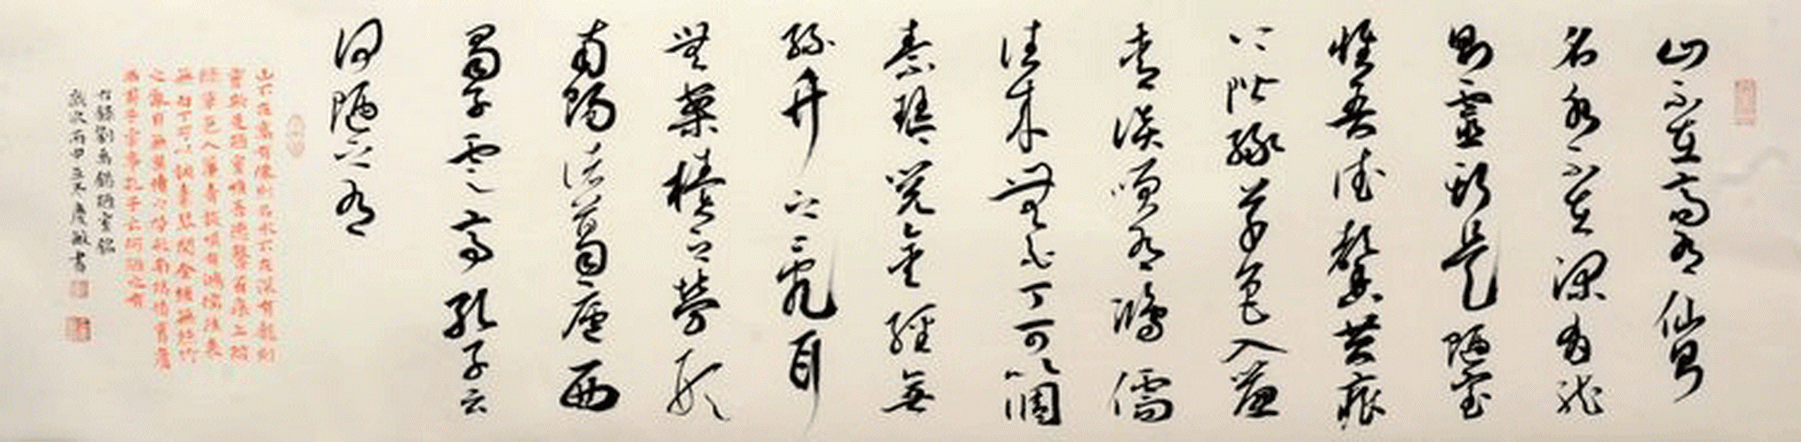 山不在高有仙則
名水不在深有龍
則靈斯是陋室
惟吾德馨苔痕
上階綠草色入簾
青談笑有鴻儒
往來無白丁可以調
素琴閱金經無
絲竹之亂耳
無案牘之勞形
南陽諸葛廬西
蜀子雲亭孔子云
何陋之有
山不在高有僊則名水不在深有龍則
靈斯是陋室惟吾德馨苔痕上階
綠草色入簾青談笑有鴻儒往來
無白丁可以調素琴閱金經無絲竹
之亂耳無案牘之勞形南陽諸葛廬
西蜀子雲亭孔子云何陋之有
右錄劉禹錫陋室銘
歲次丙申冬慶敏書